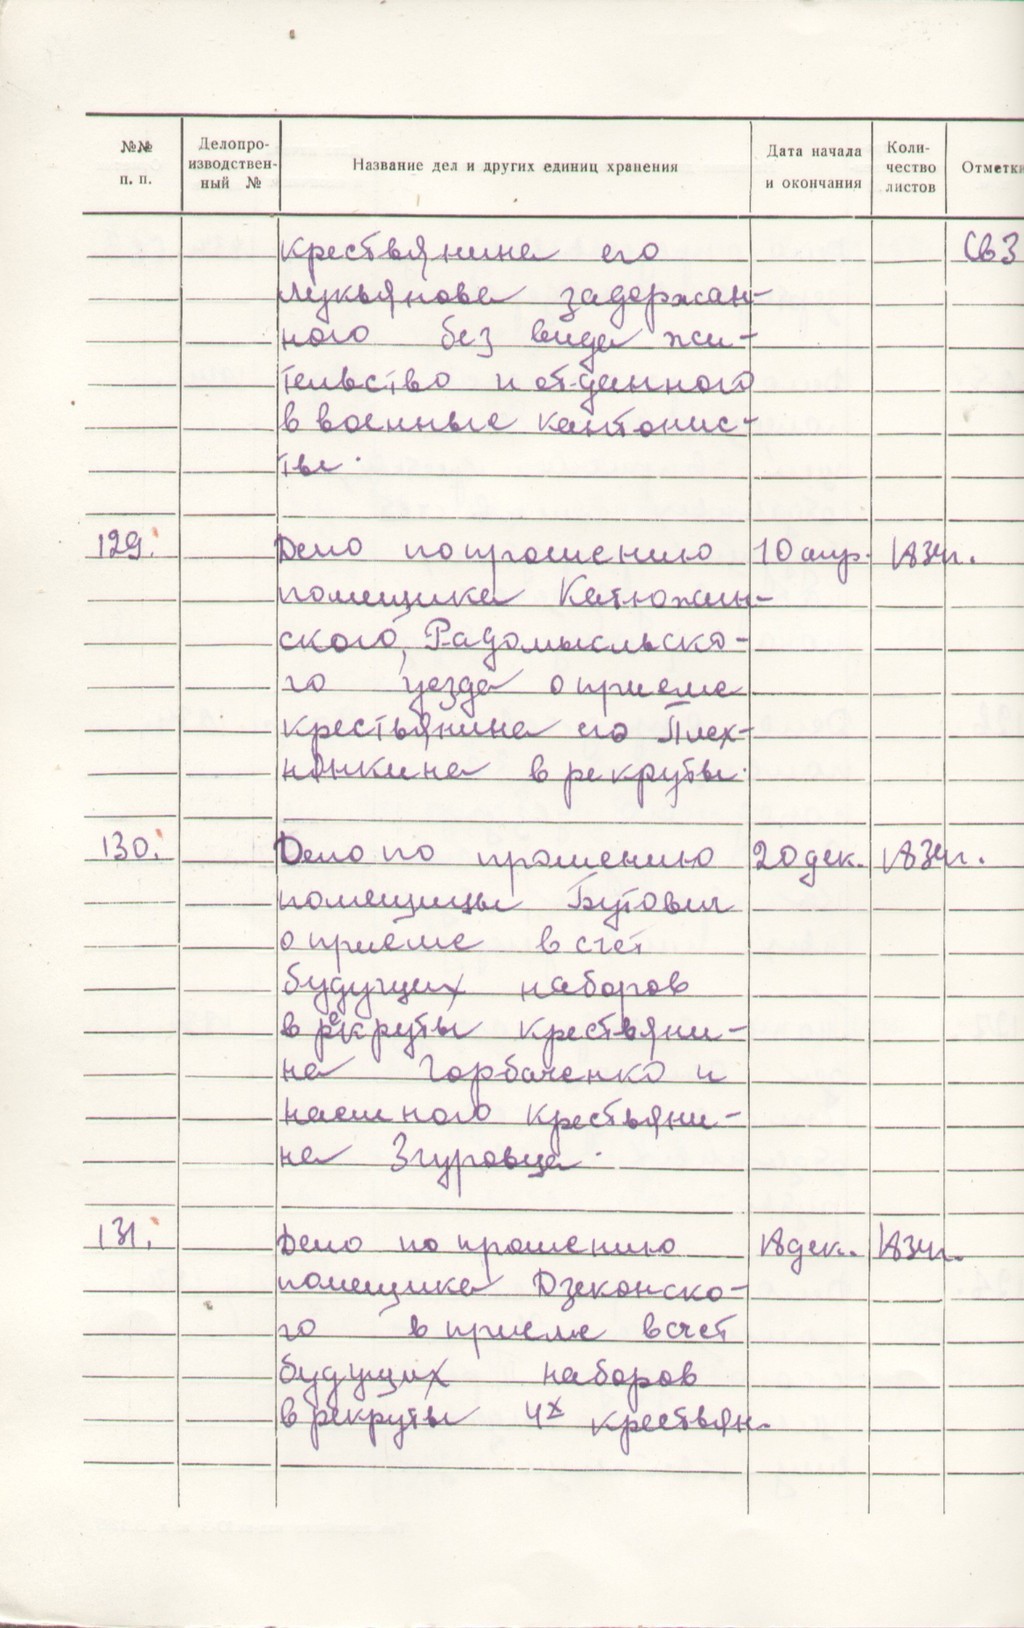 №№ п. п. Делопроизводственный № Название дел и других единиц хранения Дата начала и окончания Количество листов Отметки
крестьянина его Св 3
Лукьянова задержан-
ного без вида жи-
тельство и отданного
в военные кантонис-
ты.
129. Дело по прошению 10 апр. 1834г.
помещика Катюжин-
ского, Радомысльско-
го уезда о приеме
крестьянина его Плех-
в рекруты.
130. Дело по прошению 20 дек. 1834г.
помещицы Бутович
о приеме в счет
будущих наборов
в рекруты крестьяни-
на Горбаченко и
наемного крестьяни-
на Згуровца.
131. Дело по прошению 18 дек. 1834г.
помещика Дзеконско-
го в приеме в счет
будущих наборов
в рекруты 4х крестьян.